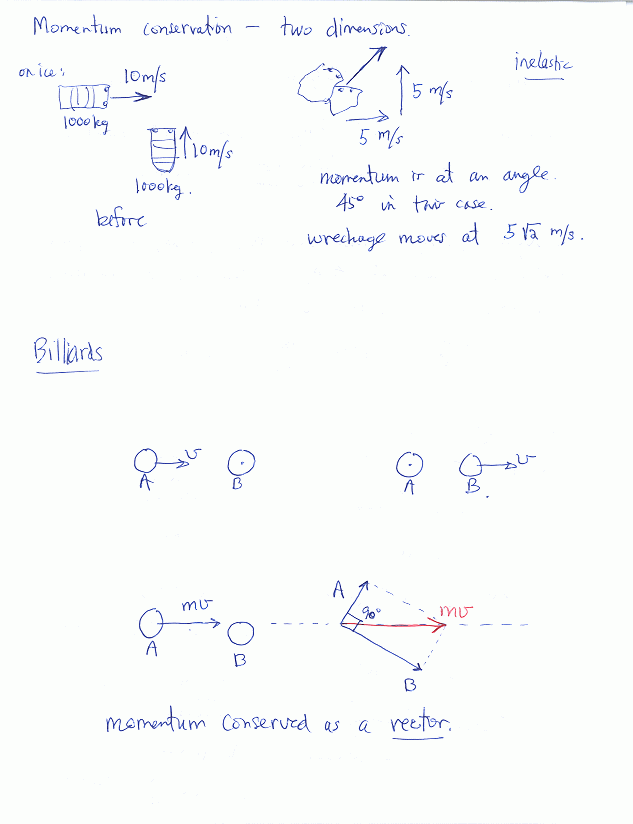 Momentum conservation – two dimensions.
on ice:
10 m/s
1000 kg
10 m/s
1000 kg.
before
inelastic
5 m/s
5 m/s
momentum is at an angle.
45° in this case.
wreckage moves at 5√2 m/s.
Billiards
v
A
B
A
B.
v
mv
A
B
A
90°
mv
B
momentum conserved as a vector.